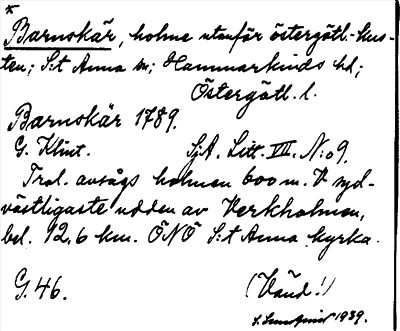 *
Barnskär, holme utanför östergötl.-kus-
ten; S:t Anna sn; Hammarkinds hd;
Östergötl. l.
Barnskär 1789.
G. Klint. SjA. Litt. VII. N:o 9.
Trol. avsågs holmen 600 m. V syd-
västligaste udden av Yerkholmen,
bel. 12,6 km. ÖNÖ S:t Anna kyrka.
G. 46. (Vänd!)
1939.